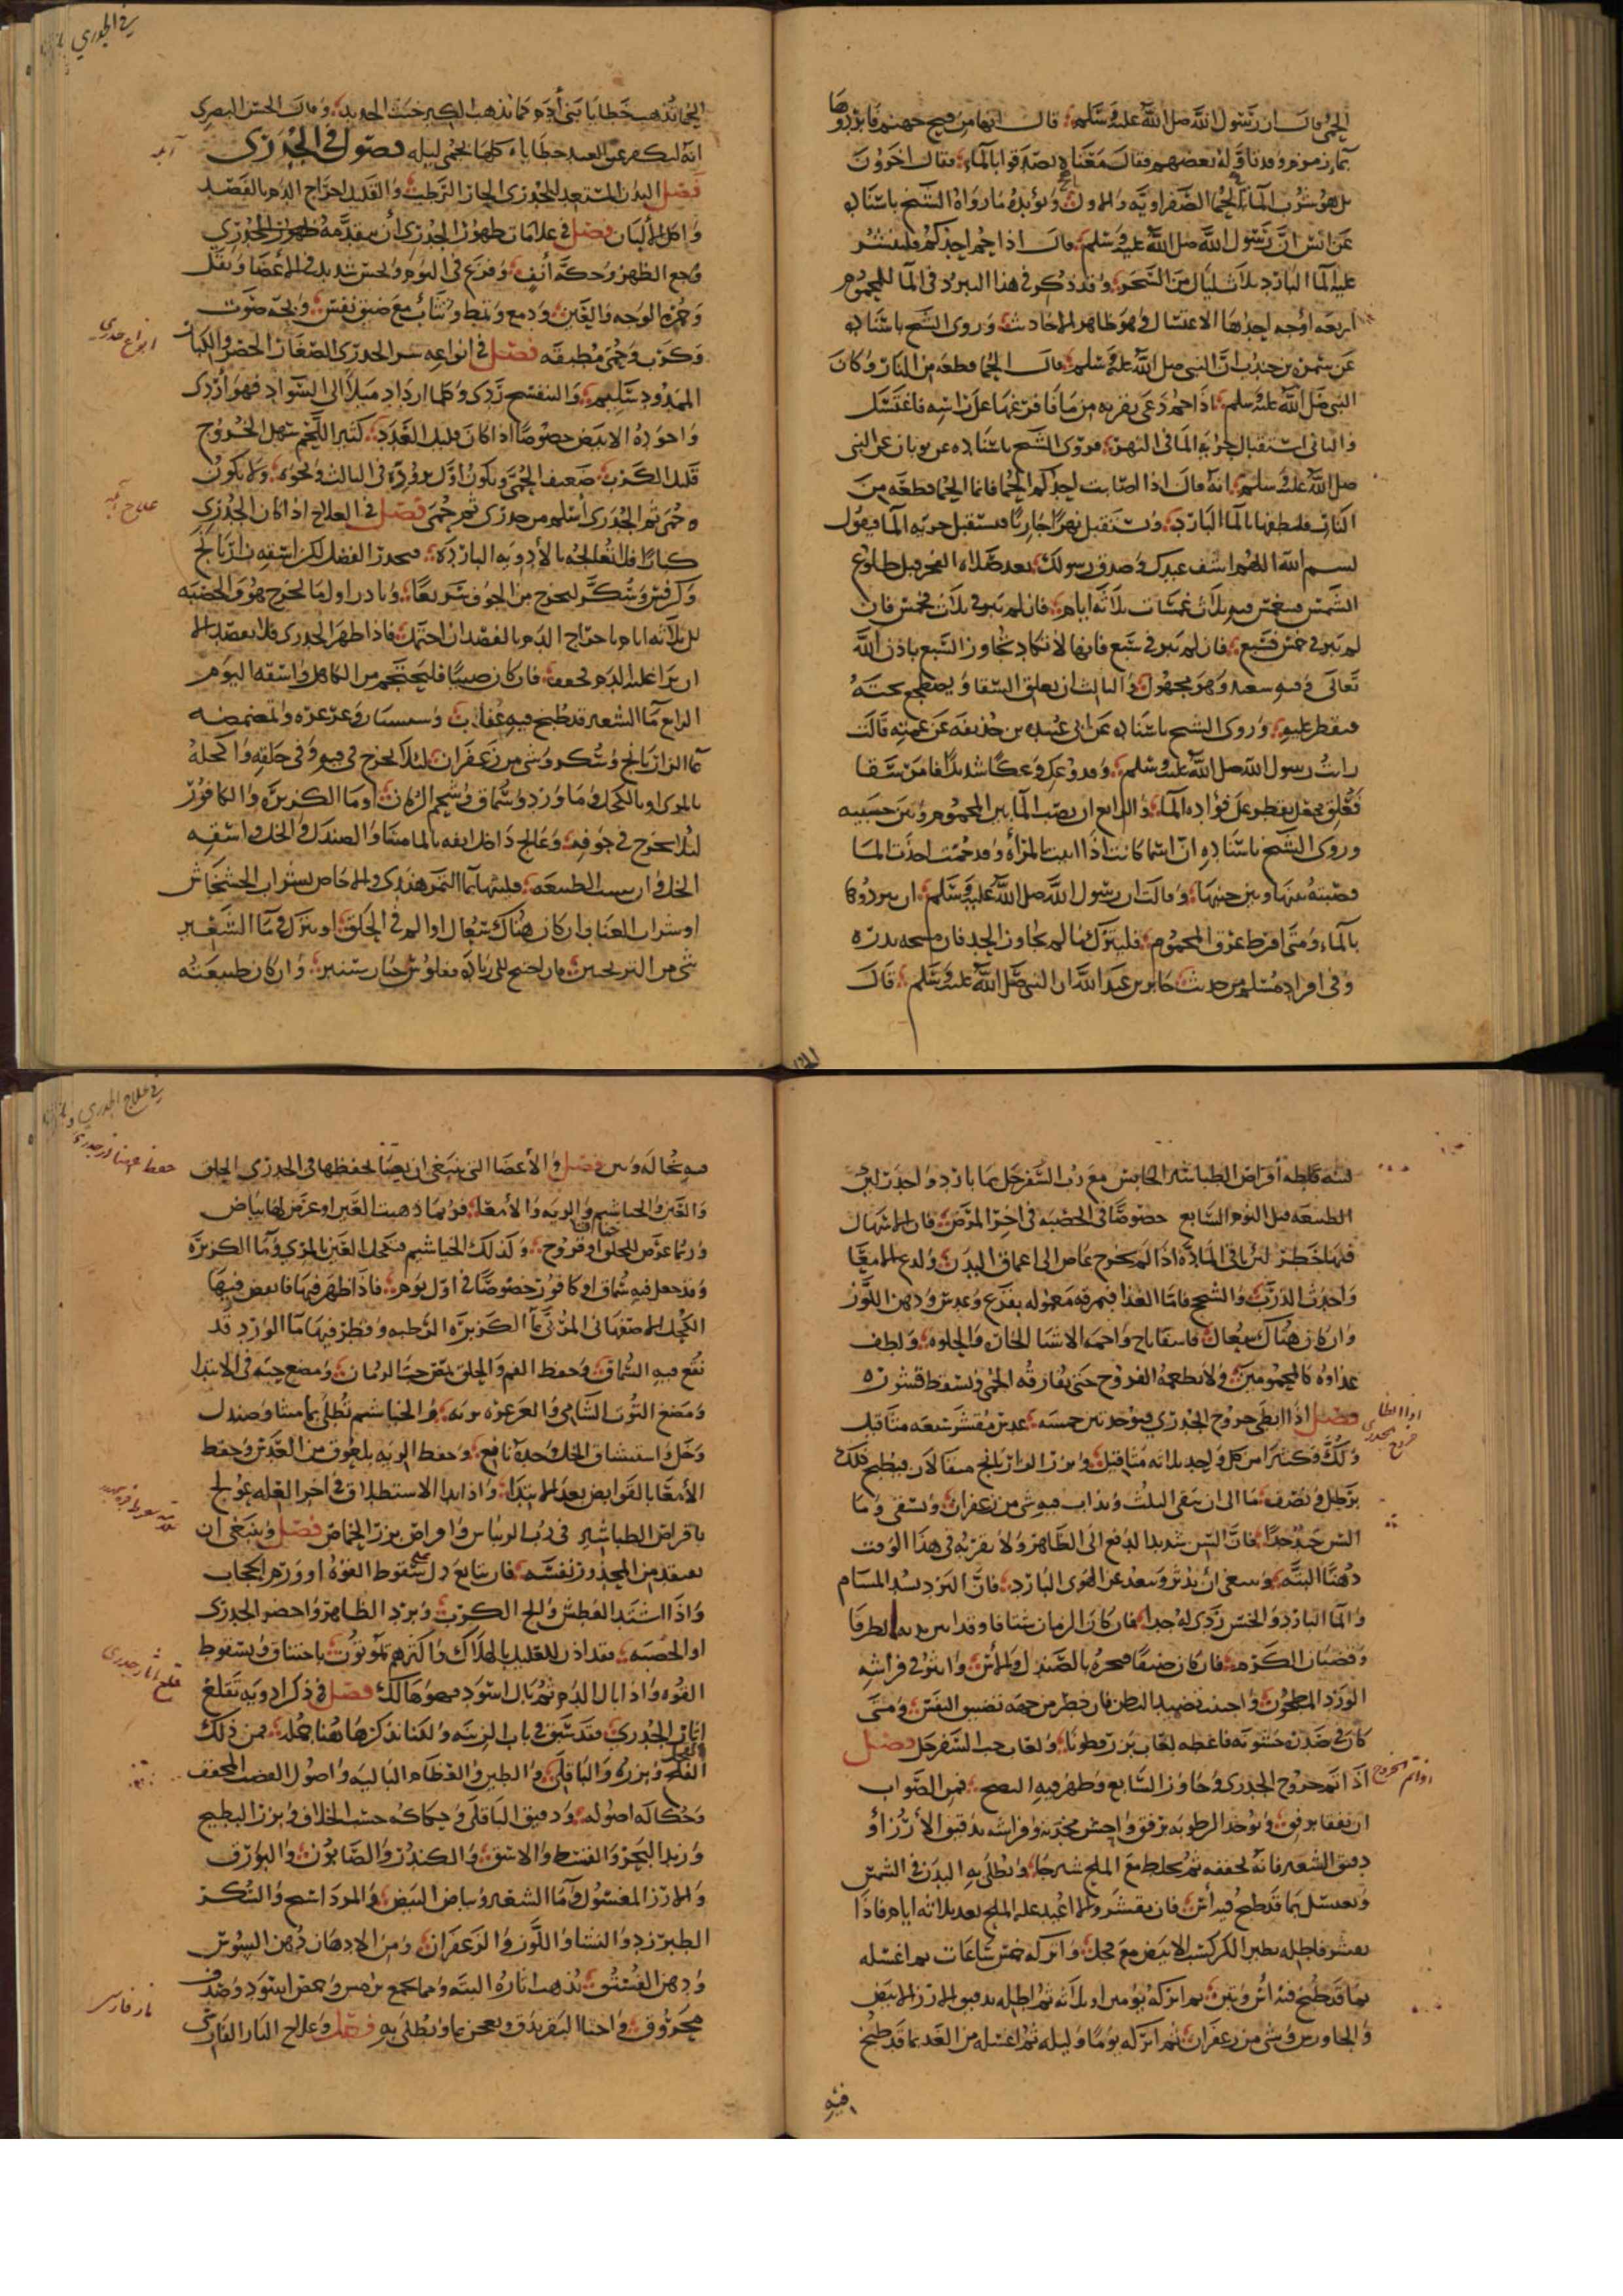 الحمى قال ان رسول الله صلى الله عليه وسلم قال انها من فيح جهنم فابردوها
بماء زمزم وقد تاوله بعضهم فقال معناه تصدقوا بالماء فقال اخرون
بل هو شرب الماء للحمى الصفراويه والاول ويؤيده ما رواه الشيخ باسناده
عن انس ان رسول الله صلى الله عليه وسلم قال اذا حم احدكم فليسن
عليه الماء البارد ثلاث ليال من السحر وقد ذكر في هذا التبرد في الماء للمحموم
اربعه اوجه احدها الاغتسال وهو ظاهر الاحاديث وروى الشيخ باسناده
عن سمرة بن جندب ان النبي صلى الله عليه وسلم قال الحمى قطعه من النار وكان
النبي صلى الله عليه وسلم اذا حم دعى بقربه من ماء فافرغها على راسه فاغتسل
والثاني استقبال جرية الماء في النهر فروى الشيخ باسناده عن ثوبان عن النبي
صلى الله عليه وسلم انه قال اذا اصابت احدكم الحمى فانما الحمى قطعه من
النار فليطفها بالماء البارد ويستقبل نهرا جاريا فيستقبل جريه الماء فيقول
بسم الله اللهم اشف عبدك وصدق رسولك بعد صلاه الفجر قبل طلوع
الشمس فيغمس فيه ثلاث غمسات ثلاثه ايام فان لم يبر في ثلاث فخمس فان
لم يبر في خمس فسبع فان لم يبر في سبع فانها لا تكاد تجاوز السبع باذن الله
تعالى وفيه سعيد وهو مجهول والثالث ان يعلق السقا ويضطجع تحته
فيقطر عليه وروى الشيخ باسناده عن ابي عبيده بن حذيفه عن عمته قالت
رايت رسول الله صلى الله عليه وسلم وقد وعك وعكا شديدا فامر بسقا
فعلق فجعل يقطر على فؤاده الماء والرابع ان يصب الماء بين المحموم وبين جيبه
وروى الشيخ باسناده ان اسما كانت اذا اتيت بالمراة وقد حمت اخذت الما
فصبته بينها وبين جيبها وقالت ان رسول الله صلى الله عليه وسلم امر ان نبردها
بالماء ومتى افرط عرق المحموم فليترك ما لم يجاوز الحد فان
وفي افراد مسلم من حديث جابر بن عبد الله ان النبي صلى الله عليه وسلم قال
في الجدري
الحمى تذهب خطايا بني آدم كما يذهب الكير خبث الحديد وقال الحسن البصري
انه ليكفر عن العبد خطاياه كلها بحمى ليله فصول في الجدري
فصل البدن المستعد للجدري الحار الرطب والقليل اخراج الدم بالفصد
واكل الالبان فصل في علامات ظهور الجدري ان يتقدمه ظهور الجدري
وجع الظهر وحكة انف وفزع في النوم ونخس شديد في الاعضا وثقل
وحمرة الوجه والعين ودمع وتمط وتثاؤب مع ضيق نفس وبحه صوت
وكرب وحمى مطبقه فصل في انواعه شر الجدري الصغار الخضر والكبار
الممدود سليم والبنفسج ردي وكلما ازداد ميلا الى السواد فهو اردى
واجوده الابيض خصوصا اذا كان قليل العدد كبير الحجم سهل الخروج
قليل الكرب ضعيف الحمى ويكون اول بروزه في الثالث ونحوه ولا يكون
ه حمى ثم الجدري اسلم من جدري ثم حمى فصل في العلاج اذا كان الجدري
كبارا فلا تعالجه بالادويه البارده فيحدر الفضل لكن اسقه رازيانج
وكرفس وسكر ليخرج من الجوف سريعا وبادر اول ما يخرج هو والحصبه
قبل ثلاثه ايام باخراج الدم بالفصد ان احتمل فاذا ظهر الجدري فلا تفصد الا
ان ترا غلبة الدم تخفف فان كان صبيا فليحتجم من الكاهل واسقه اليوم
الرابع ماء الشعير قد طبخ فيه عناب وسبستان وغرغره والمضمضه
بماء الرازيانج وسكر وشي من زعفران لئلا يخرج في فيه وفي حلقه واكحله
بالمري او بالكحل وماورد وسماق وشحم الرمان او ماء الكزبره والكافور
لئلا يخرج في جوفه وعالج داخل انفه بالماميثا والصندل والخل واسقه
الخل وان يبست الطبيعه فلينها بماء التمر هندي والاجاص بشراب الخشخاش
او شراب العناب ان كان هناك سعال او الم في الحلق او ينزل في ماء الشعير
شي من الترنجبين فان احتيج الى زياده ففلوس خيار شنبر وان كان طبيعته
آبله
انواع جدري
علاج آبله
لينه فاعطه اقراص الطباشير الحابس مع رب السفرجل بماء بارد واحذر لين
الطبيعه قبل اليوم السابع خصوصا في الحصبه في اخر المرض فان الاسهال
فيها خطر لئن باقي المادة اذا لم تخرج غاص الى اعماق البدن ولدع الامعا
واحدث الذرب والشحج فاما الغذا فمزوره معموله بقرع وعدس ودهن اللوز
وان كان هناك سعال فاسفاناخ واحمه الاشيا الحاره والحلوه ولطف
غذاوه كالمحمومين ولا تطعمه الفروج حتى تفارقه الحمى وتسقط قشوره
فصل اذا ابطى خروج الجدري فيؤخذ تين خمسه عدس مقشر سبعه مثاقيل
ولك وكثيرا من كل واحد ثلاثه مثاقيل وبزر الرازيانج مثقالان فيطبخ ذلك
برطل ونصف ما الى ان يبقى الثلث ويداف فيه شي من زعفران ويسقى وماء
التين جيد جدا فان التين شديد الدفع الى الظاهر ولا تقربه في هذا الوقت
دهنا البته وينبغي ان يدثر ويبعد عن الهوى البارد فان البرد يسد المسام
والما البارد والخس ردي له جدا فان كان الزمان شتا فاوقد بين يديه الطرفا
وقضبان الكرم فان كان صيفا فبخره بالصندل والاس وانثر في فراشه
الورد المطحون واجتنب تضميد البطن فان خطر من جهه تضييق النفس ومتى
كان في صدره خشونه فاعطه لعاب بزر قطونا ولعاب حب السفرجل فصل
اذا تم خروج الجدري وجاوز السابع وظهر فيه النضج فمن الصواب
ان تفقا برفق ويؤخذ الرطوبه برفق واحش مخدته وفراشه بدقيق الارز او
دقيق الشعير فانه يجففه ثم يخلط مع الملح شيرجا ويطلى به البدن في الشمس
ويغسل بماء قد طبخ فيه اس فان تقشر والا اعيد عليه الملح بعد ثلاثه ايام فاذا
تقشر فاطله بطين الكركست الابيض مع خل واتركه خمس ساعات ثم اغسله
بماء قد طبخ فيه اس وتين ثم اتركه يومين او ثلاثه ثم اطله بدقيق الارز الابيض
والجاورس وشي من زعفران ثم اتركه يوما وليله ثم اغسله من الغد بماء قد طبخ
فيه
في علاج الجدري
فيه نخاله وتين فصل والاعضا التي ينبغي ان يعتنا بحفظها في الجدري الحلق
والعين والخياشيم والريه والامعا فربما ذهبت العين او عرض لها بياض
وربما عرض للحلق خناق او قروح وكذلك الخياشيم فتكحل العين بالمري وماء الكزبرة
وقد جعل فيه سماق او كافور خصوصا في اول يوم فاذا ظهر فيها فانفض فيها
الكحل الاصفهاني المربى بماء الكزبره الرطبه وقطر فيها ماء الورد قد
نقع فيه السماق وحفظ الفم والحلق بمص حب الرمان ومضغ حبه في الابتدا
ومضغ التوت الشامي والغرغره بربه والخياشيم تطلى بماميثا وصندل
وخل واستنشاق الخل وحده نافع وحفظ الريه بلعوق من العدس وحفظ
الامعا بالقوابض بعد الابتدا واذا بدا الاستطلاق في اخر العله عولج
باقراص الطباشير في رب الريباس واقراص بزر الحماض فصل وينبغي ان
يتفقد من المجدور نفسه فان تتابع دل على سقوط القوة او ورم الحجاب
واذا اشتد العطش والح الكرب وبرد الظاهر واخضر الجدري
او الحصبه فقد اذن العليل بالهلاك واكثرهم يموتون باختناق وبسقوط
القوه واذا بال الدم ثم بال اسود فهو هالك فصل في ذكر ادويه تقلع
اثار الجدري فقد سبق في باب الزينه ولكنا نذكر هاهنا جمله فمن ذلك
الفجل وبزره والباقلى والطين والعظام الباليه واصول القصب المجفف
وحكاكه اصوله ودقيق الباقلى وحكاكه خشب الخلاف وبزر البطيخ
وزبد البحر والقسط والاشق والكندر والصابون والبورق
والارز المغسول وماء الشعير وبياض البيض والمرداسنج والسكر
الطبرزد والنشا واللوز والزعفران ومن الادهان دهن السوسن
ودهن الفستق يذهب اثاره البته ومما يجمع ترمس وحمص اسود وصدف
محروق واخثا البقر يدق ويعجن بماء ويطلى به فصل وعلاج النار الفارسي
قلع آثار جدري
نار فارسى